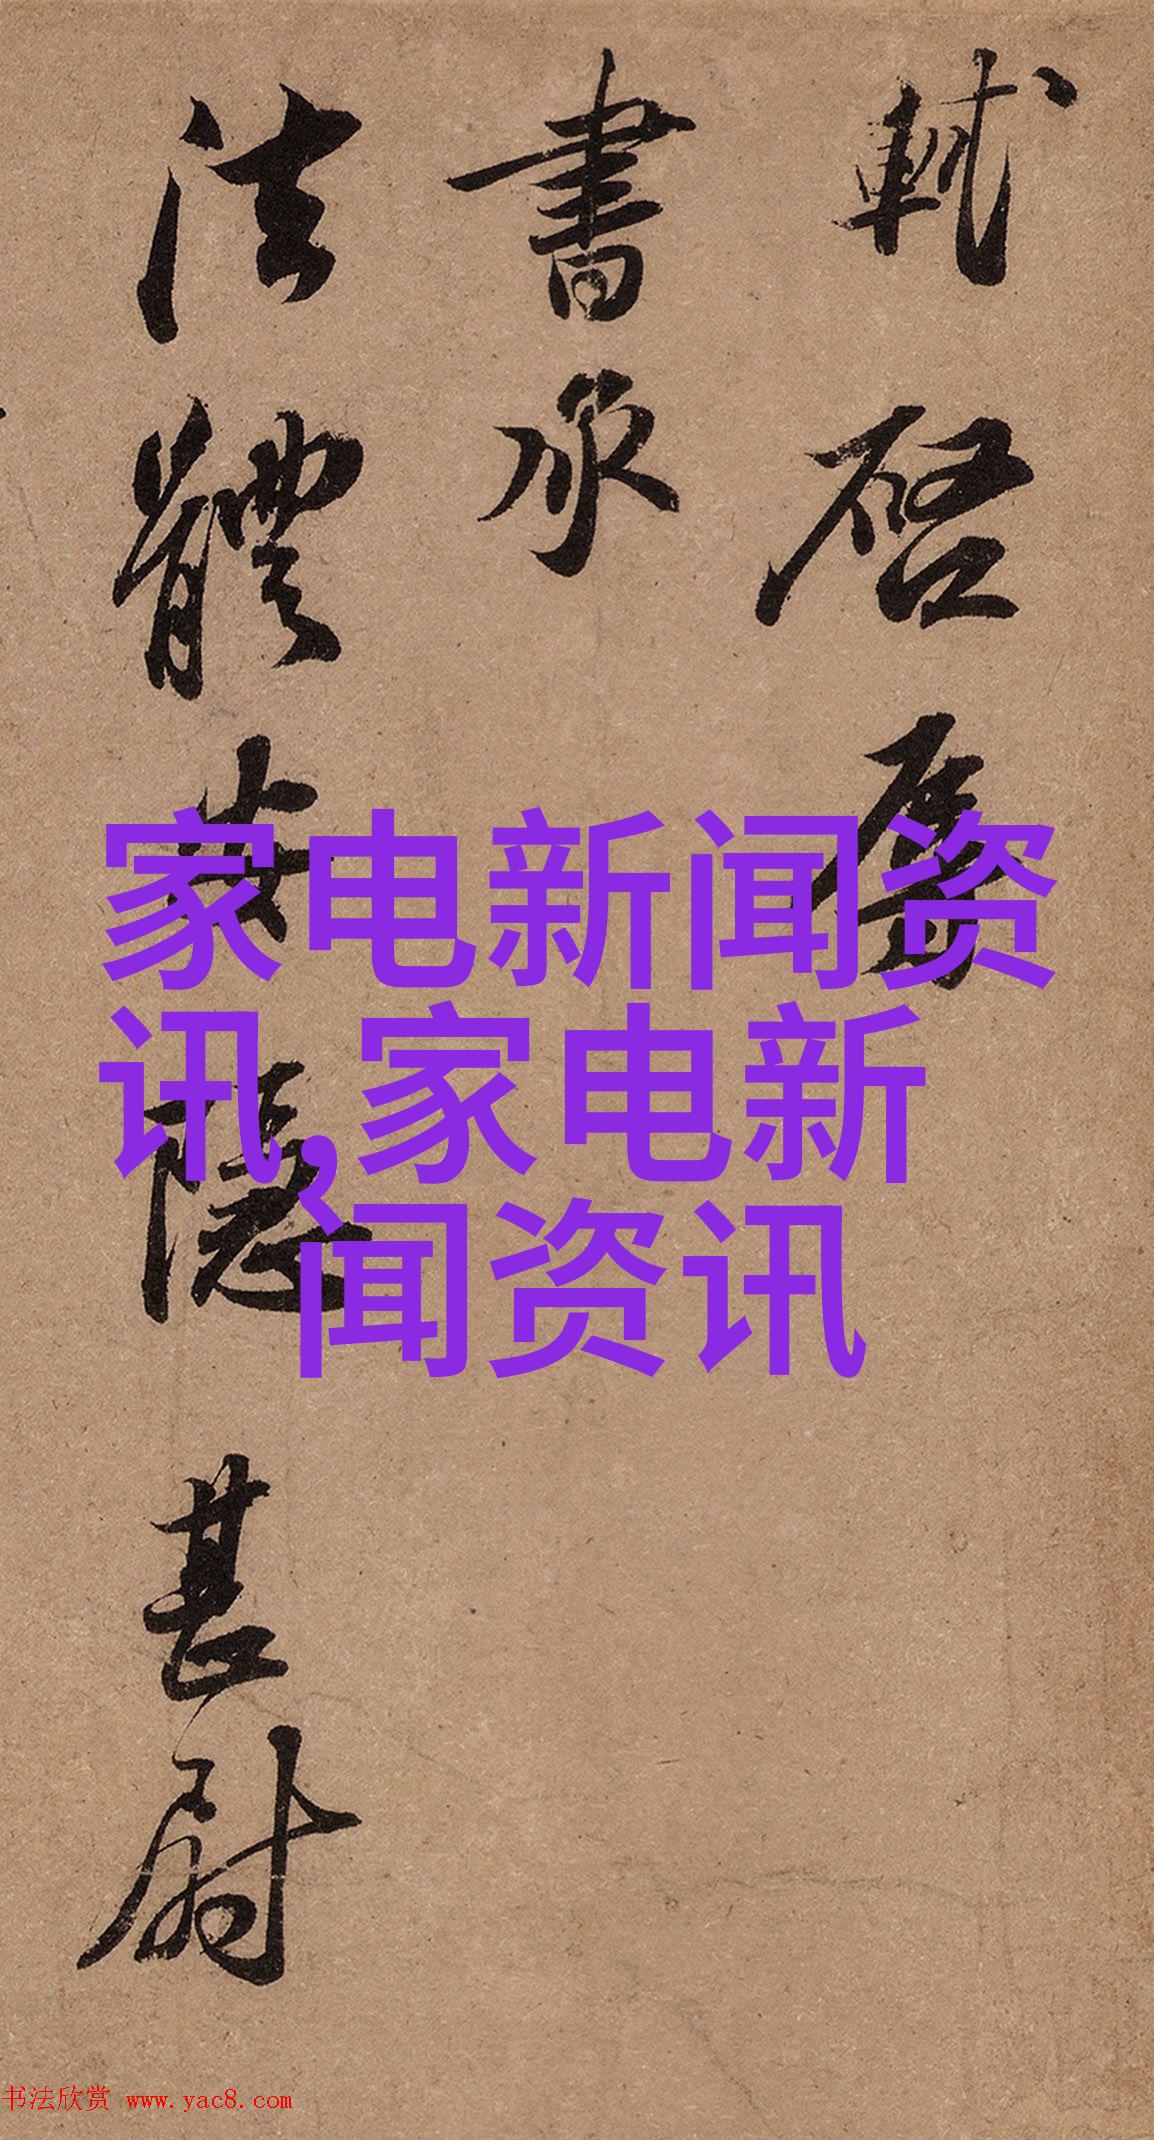 軾啓辱
書承
法體安隱甚尉
家电新闻资
讯,家电新
闻资讯
书法欣赏 www.yac8.com